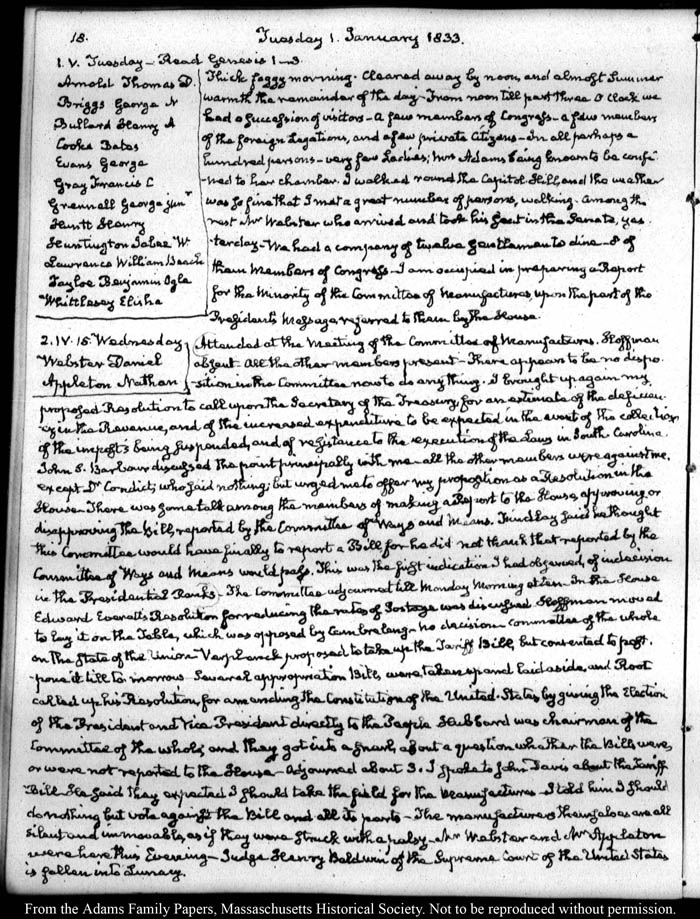 18.
Tuesday 1. January 1833.
1. V. Tuesday – Read Genesis 1–3.
Arnold Thomas D.
Briggs George N
Bullard Henry A
Cooke Bates
Evans George
Gray Francis C
Grennell George junr
Hewitt Henry
Huntington Jabez W
Lawrence William Beach
Tayloe Benjamin Ogle
Whittlesey Elisha
Thick foggy morning. Cleared away by noon, and almost Summer
warmth the remainder of the day. From noon till past three O'Clock we
had a succession of visitors – a few members of Congress – a few members
of the foreign Legations, and a few private Citizens – In all perhaps a
hundred persons – very few Ladies; Mrs Adams being known to be confi-
-ned to her chamber. I walked round the Capitol Hill, and the weather
was so fine that I met a great number of persons, walking. Among the
rest Mr Webster who arrived and took his Seat in the Senate, yes-
-terday – We had a company of twelve Gentlemen to dine – 8 of
them Members of Congress – I am occupied in preparing a Report
for the Minority of the Committee of Manufactures, upon the part of the
President's Message referred to them by the House.
2. IV. 15. Wednesday
Webster Daniel
Appleton Nathan
Attended at the Meeting of the Committee of Manufactures. Hoffman
absent. All the other members present – There appears to be no dispo-
-sition in the Committee now to do any thing. I brought up again my
proposed Resolution to call upon the Secretary of the Treasury, for an estimate of the deficien-
cy in the Revenue, and of the increased expenditure to be expected in the event of the collection
of the imposts being suspended, and of resistance to the execution of the Laws in South Carolina.
John S. Barbour discussed the point principally with me – all the other members were against me,
except Dr Condict, who said nothing; but urged me to offer my proposition as a Resolution in the
House – There was some talk among the members of making a Report to the House, approving or
disapproving the Bill, reported by the Committee of Ways and Means. Findlay said he thought
this Committee would have finally to report a Bill for he did not think that reported by the
Committee of Ways and Means would pass. This was the first indication I had observed, of indecision
in the Presidential Ranks – The Committee adjourned till Monday Morning at ten – In the House
Edward Everett's Resolution for reducing the rates of Postage was discussed. Hoffman moved
to lay it on the Table, which was opposed by Cambreleng – no decision – Committee of the whole
on the State of the Union – Verplanck proposed to take up the Tariff Bill, but consented to post-
-pone it till to-morrow – Several appropriation Bills, were taken up and laid aside, and Root
called up his Resolution, for amending the Constitution of the United States, by giving the Election
of the President and Vice President directly to the People. Hubbard was chairman of the
Committee of the whole, and they got into a snarl, about a question whether the Bills, were,
or were not reported to the House – Adjourned about 3. I spoke to John Davis about the Tariff
Bill – He said they expected I should take the field for the Manufactures – I told him I should
do nothing but vote against the Bill and all its parts – The manufacturers themselves are all
silent and immovable, as if they were struck with a palsy – Mr Webster and Mr Appleton
were here this Evening – Judge Henry Baldwin of the Supreme Court of the United States
is fallen into Lunacy.
From the Adams Family Papers, Massachusetts Historical Society. Not to be reproduced without permission.